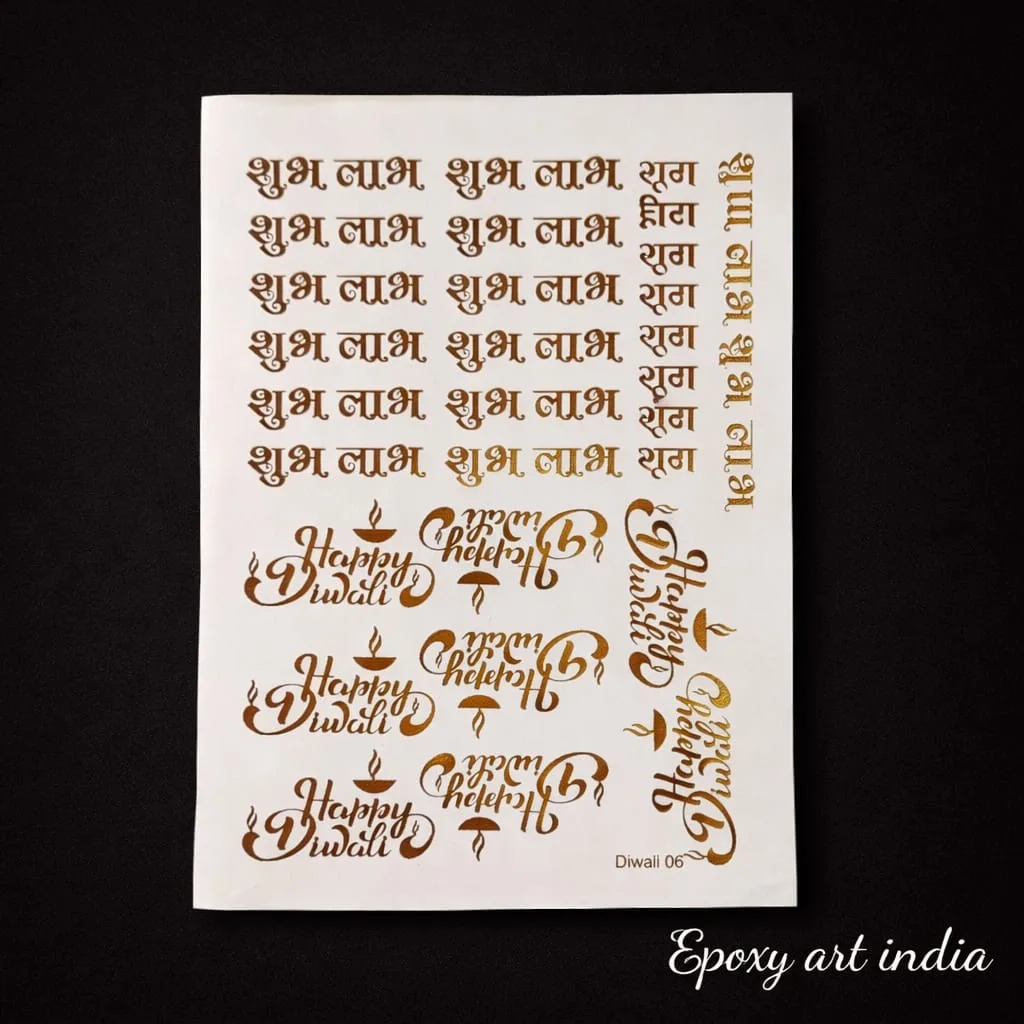 शुभ लाभ शुभ लाभ
शुभ लाभ शुभ लाभ
शुभ लाभ शुभ लाभ
शुभ लाभ शुभ लाभ
शुभ लाभ शुभ लाभ
शुभ लाभ शुभ लाभ
लाभ शुभ लाभ
Happy Diwali
Happy Diwali
Happy Diwali
Happy Diwali
Happy Diwali
Happy Diwali
Happy Diwali
Happy Diwali
Diwali 06
Epoxy art india